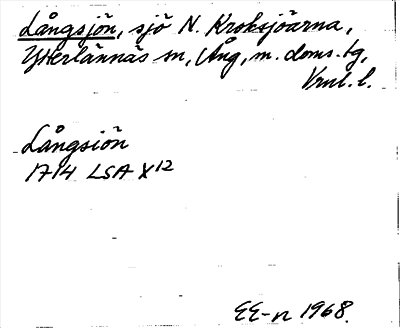 Långsjön, sjö N. Kroksjöarna,
Ytterlännäs sn, Ång. m. doms. tg,
Vrnl. l.
Långsiön
1714 LSA X12
EE-n 1968.